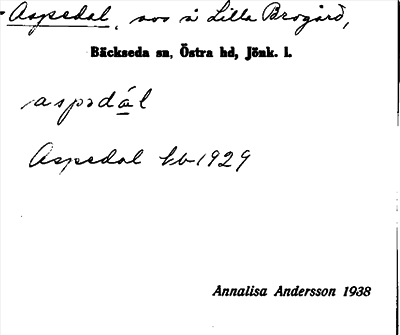 Aspedal, avs å Lilla Brogård,
Bäckseda sn, Östra hd, Jönk. l.
aspədál
Aspedal kb 1929
Annalisa Andersson 1938